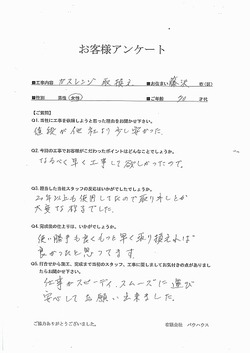 お客様アンケート
■工事内容 ガスレンジ 取換え ■お住まい 藤沢 市(区)
■性別 男性 女性 ■ご年齢 70 才代
【ご質問】
Q1.当社に工事を依頼しようと思った理由をお聞かせ下さい。
値段が他社より少し安かった。
Q2.今回の工事でお客様がこだわったポイントはどんなことでしょうか。
なるべく早く工事して欲しかったので。
Q3.担当した当社スタッフの対応はいかがでしたでしょうか。
20年以上も使用してたので取り外しとか
大変な様でした。
Q4.完成後の仕上りは、いかがでしょうか。
使い勝手も良くもっと早く取り換えれば
良かったと思ってます。
Q5.打合せから施工、完成まで当初のスタッフ、工事に関しましてお気付きの点がありましたらお聞かせ下さい。
仕事がスピーディ、スムーズに運び
安心してお願い出来ました。
ご協力ありがとうございました。 有限会社 バウハウス